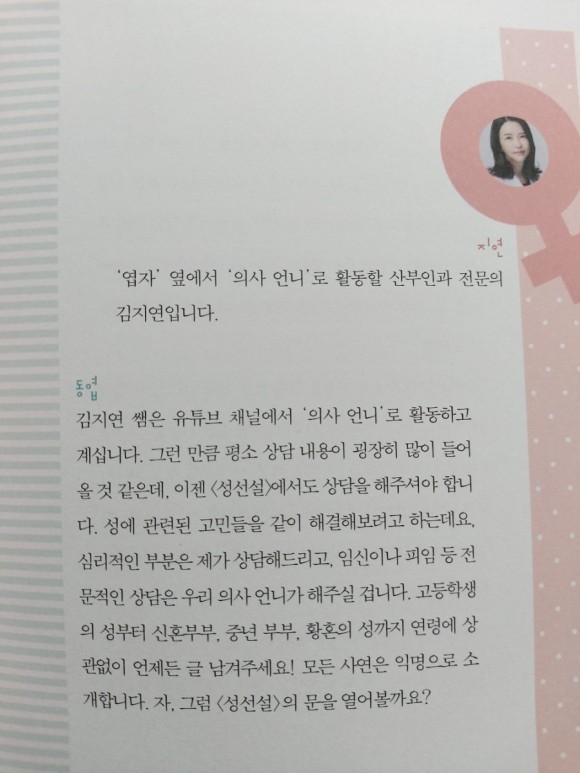 지연
‘엽자’ 옆에서 ‘의사 언니’로 활동할 산부인과 전문의
김지연입니다.
동엽
김지연 쌤은 유튜브 채널에서 ‘의사 언니’로 활동하고
계십니다. 그런 만큼 평소 상담 내용이 굉장히 많이 들어
올 것 같은데, 이젠 〈성선설〉에서도 상담을 해주셔야 합니
다. 성에 관련된 고민들을 같이 해결해보려고 하는데요,
심리적인 부분은 제가 상담해드리고, 임신이나 피임 등 전
문적인 상담은 우리 의사 언니가 해주실 겁니다. 고등학생
의 성부터 신혼부부, 중년 부부, 황혼의 성까지 연령에 상
관없이 언제든 글 남겨주세요! 모든 사연은 익명으로 소
개합니다. 자, 그럼 〈성선설〉의 문을 열어볼까요?